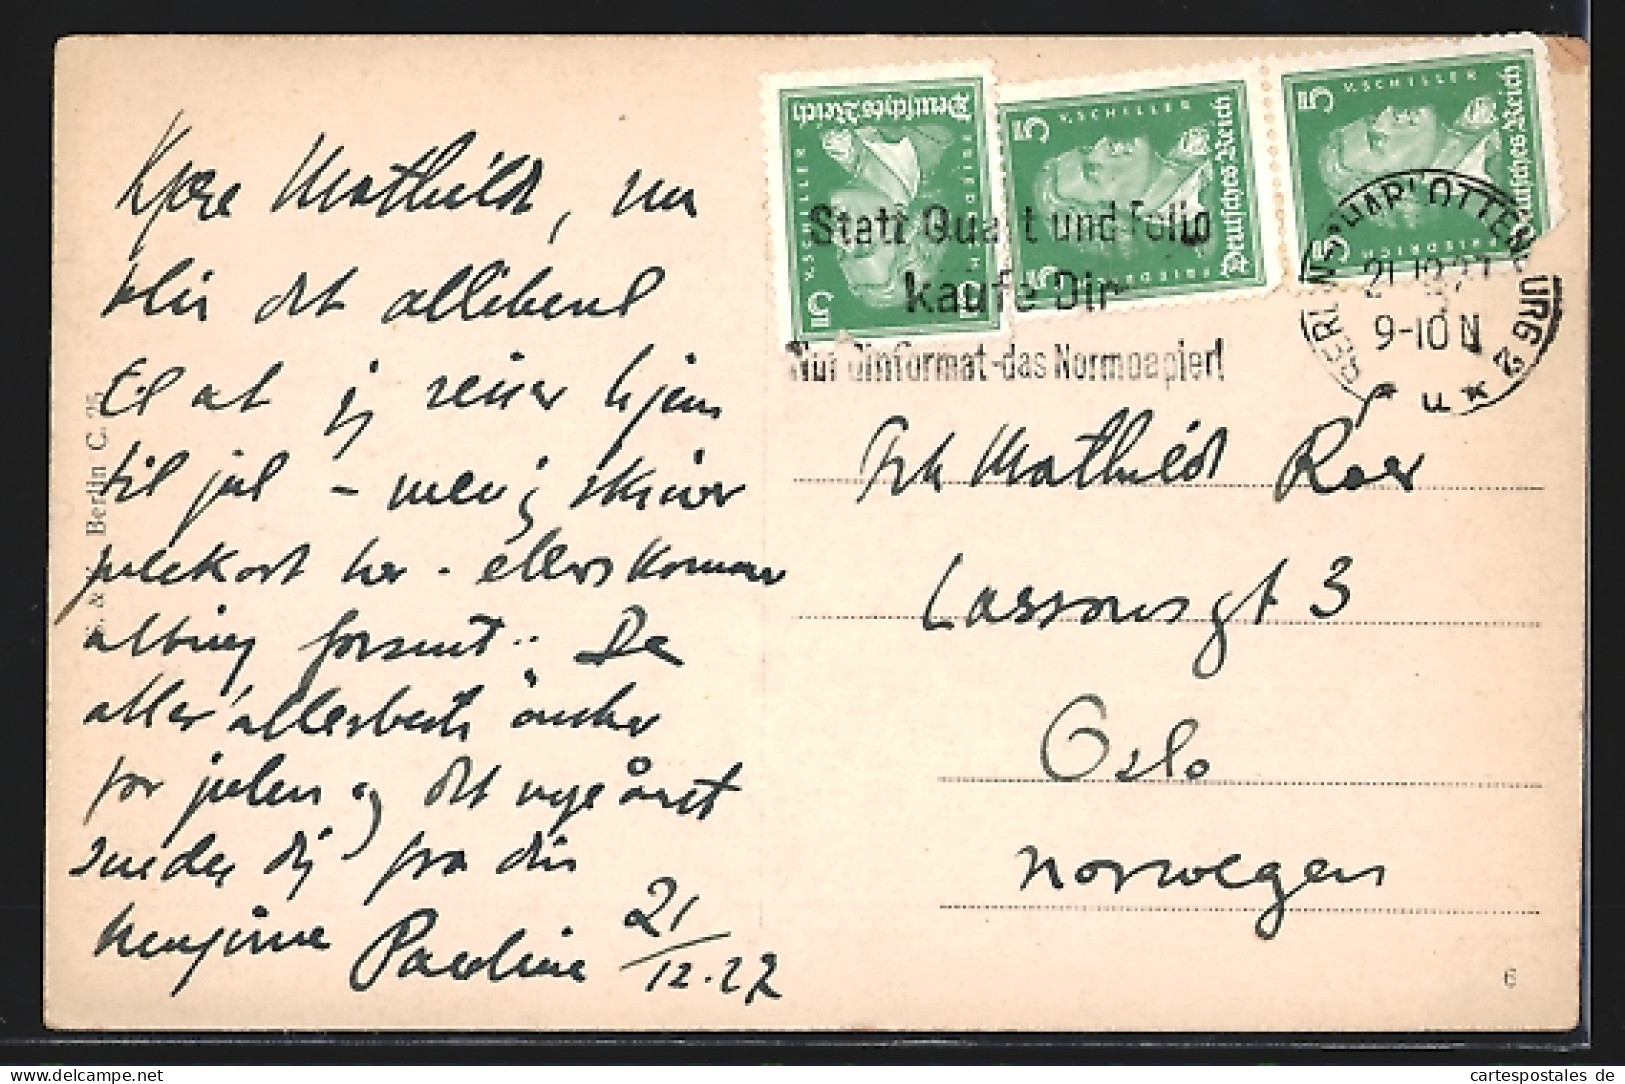 Kjære Mathilde, nu
blir det allikevel
til at jeg reiser hjem
til jul – men jeg skriver
julekort her - ellers kommer
alting forsent.. De
aller allerbeste ønsker
for julen og det nye året
sender dig fra din
hengivne Pauline 21/12.27
Berlin C. 25
Deutsches Reich
V. SCHILLER
FRIEDRICH
5
5
V. SCHILLER
Deutsches Reich
FRIEDRICH
5
5
V. SCHILLER
Deutsches Reich
FRIEDRICH
5
5
Statt Quart und Folio
kaufe Dir
Nur Dinformat-das Normpapier!
BERLIN-CHARLOTTENBURG 2
21.12.27
9-10 N
Frk Mathilde
3
Oslo
Norwegen
6
cartespostales de